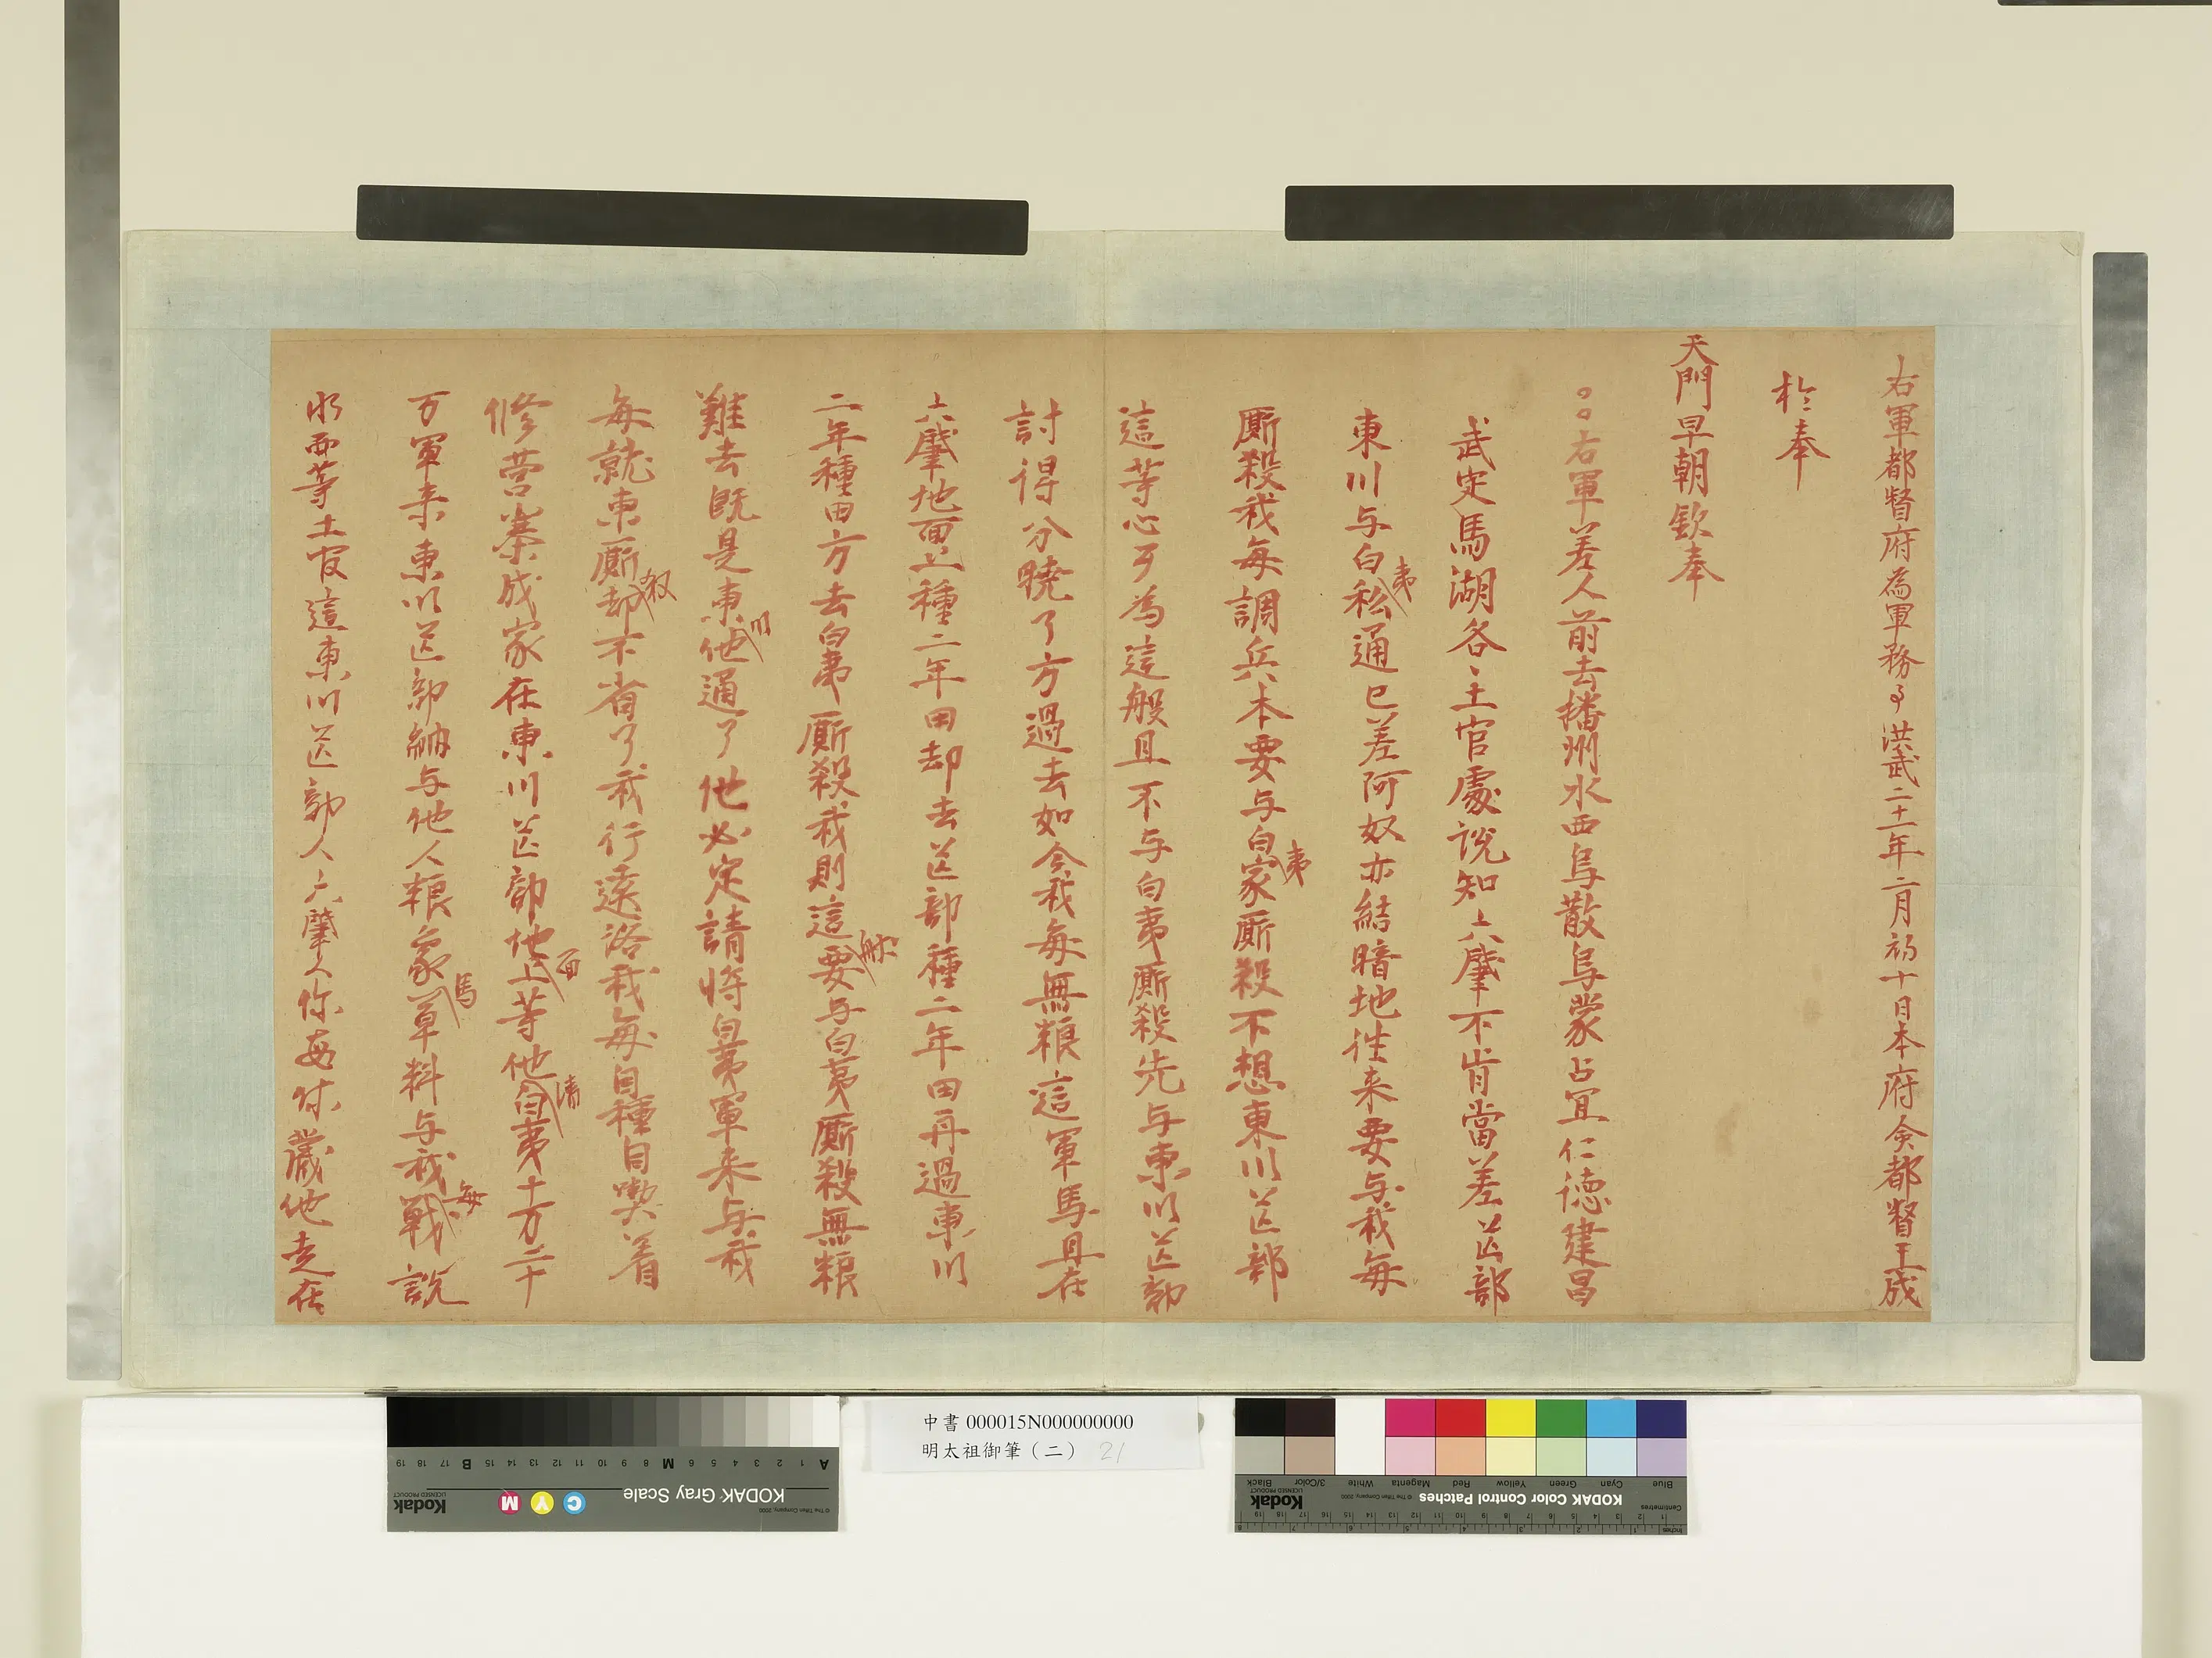 右軍都督府為軍務事洪武二十一年二月初十日本府僉都督王成
於奉
天門早朝欽奉
。。右軍差人前去播州水西烏散烏蒙占宜仁德建昌
武定馬湖各〻土官處說知六肇不肯當差芒部
東川与白私夷通已差阿奴亦結暗地往来要与我每
厮殺我每調兵本要与白家夷厮殺不想東川芒部
這等心歹為這般且不与白夷厮殺先与東川芒部
討得分曉了方過去如今我每無粮這軍馬且在
六肇地面上種二年田却去芒部種二年田再過東川
二年種田方去白夷厮殺我則這要般与白夷厮殺無粮
難去既是東他川通了他必定請將白夷軍来与我
每就東厮却殺不省了我行遠路我每自種自喫着
修营寨成家在東川芒部地上面等他白請夷十万二十
万軍来東川芒部納与他人粮象草馬料与我戰每說
水西等土官這東川芒部人六肇人你每休藏他走在
KODAK Gray Scale
Kodak
LICENSED PRODUCT
© The Tiffen Company, 2000
C Y M
A 1 2 3 4 5 6 M 8 9 10 11 12 13 14 15 B 17 18 19
中書 000015N000000000
明太祖御筆（二） 21
KODAK Color Control Patches
Kodak
LICENSED PRODUCT
© The Tiffen Company, 2000
Blue Cyan Green Yellow Red Magenta White 3/Color Black
Centimetres
Inches